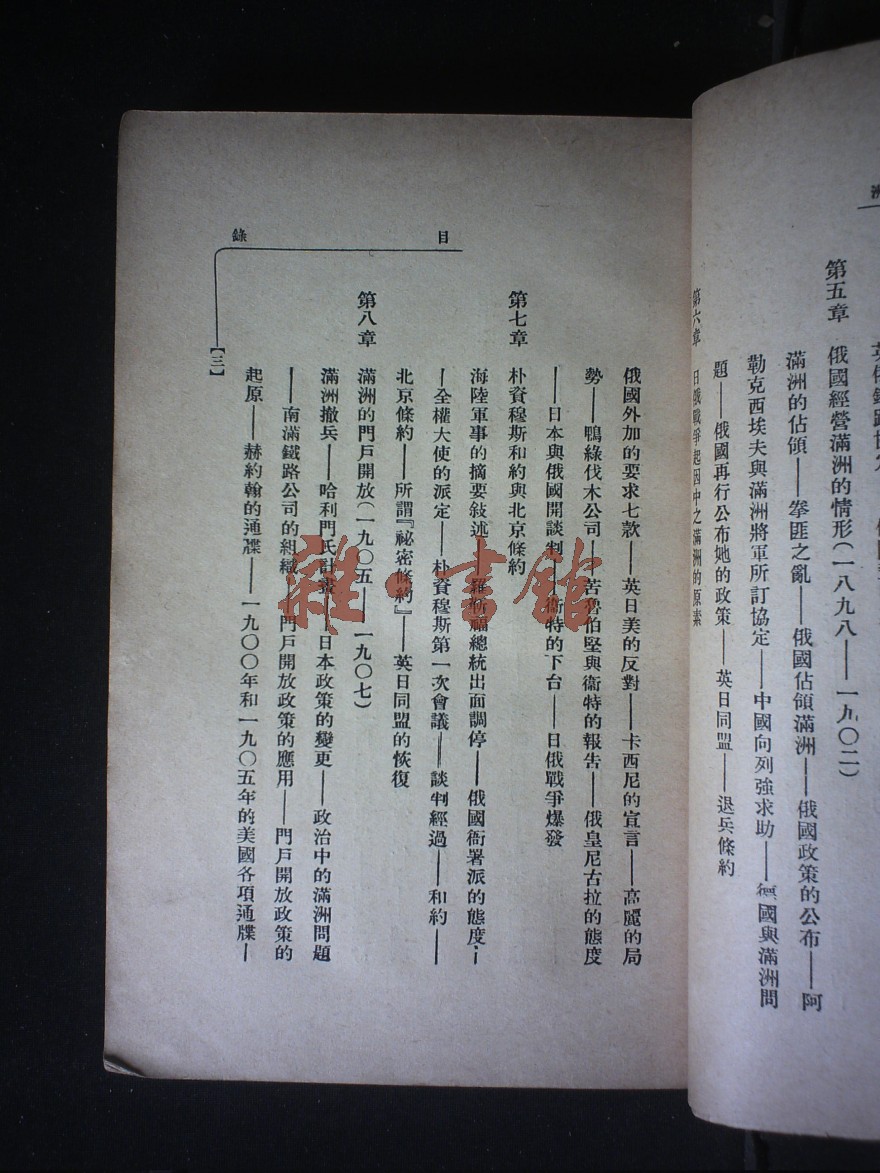 第五章　俄國經營滿洲的情形(一八九八——一九〇二)
滿洲的佔領——拳匪之亂——俄國佔領滿洲——俄國政策的公布——阿
勒克西埃夫與滿洲將軍所訂協定——中國向列強求助——德國與滿洲問
題——俄國再行公布她的政策——英日同盟——退兵條約
第六章　日俄戰爭起因中之滿洲的原素
目錄
俄國外加的要求七款——英日美的反對——卡西尼的宣言——高麗的局
勢——鴨綠伐木公司——苦魯伯堅與衞特的報告——俄皇尼古拉的態度
——日本與俄國開談判——衞特的下台——日俄戰爭爆發
第七章　朴資穆斯和約與北京條約
海陸軍事的摘要敍述——羅斯福總統出面調停——俄國衙署派的態度—
—全權大使的派定——朴資穆斯第一次會議——談判經過——和約——
北京條約——所謂『祕密條約』——英日同盟的恢復
第八章　滿洲的門戶開放(一九〇五——一九〇七)
滿洲撤兵——哈利門氏計畫——日本政策的變更——政治中的滿洲問題
——南滿鐵路公司的組織——門戶開放政策的應用——門戶開放政策的
起原——赫約翰的通牒——一九〇〇年和一九〇五年的美國各項通牒—
【三】
雜·書館